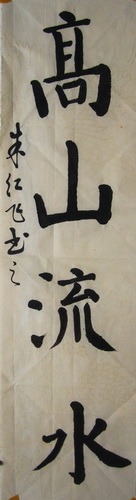 髙山流水
朱红飞书之